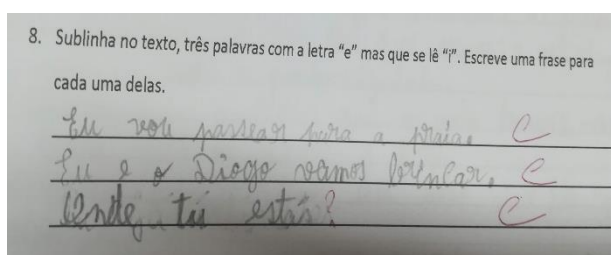 8. Sublinha no texto, três palavras com a letra "e" mas que se lê "i". Escreve uma frase para
cada uma delas.
Eu vou passear para a praia. C
Eu e o Diogo vamos brincar. C
Onde tu estás? C